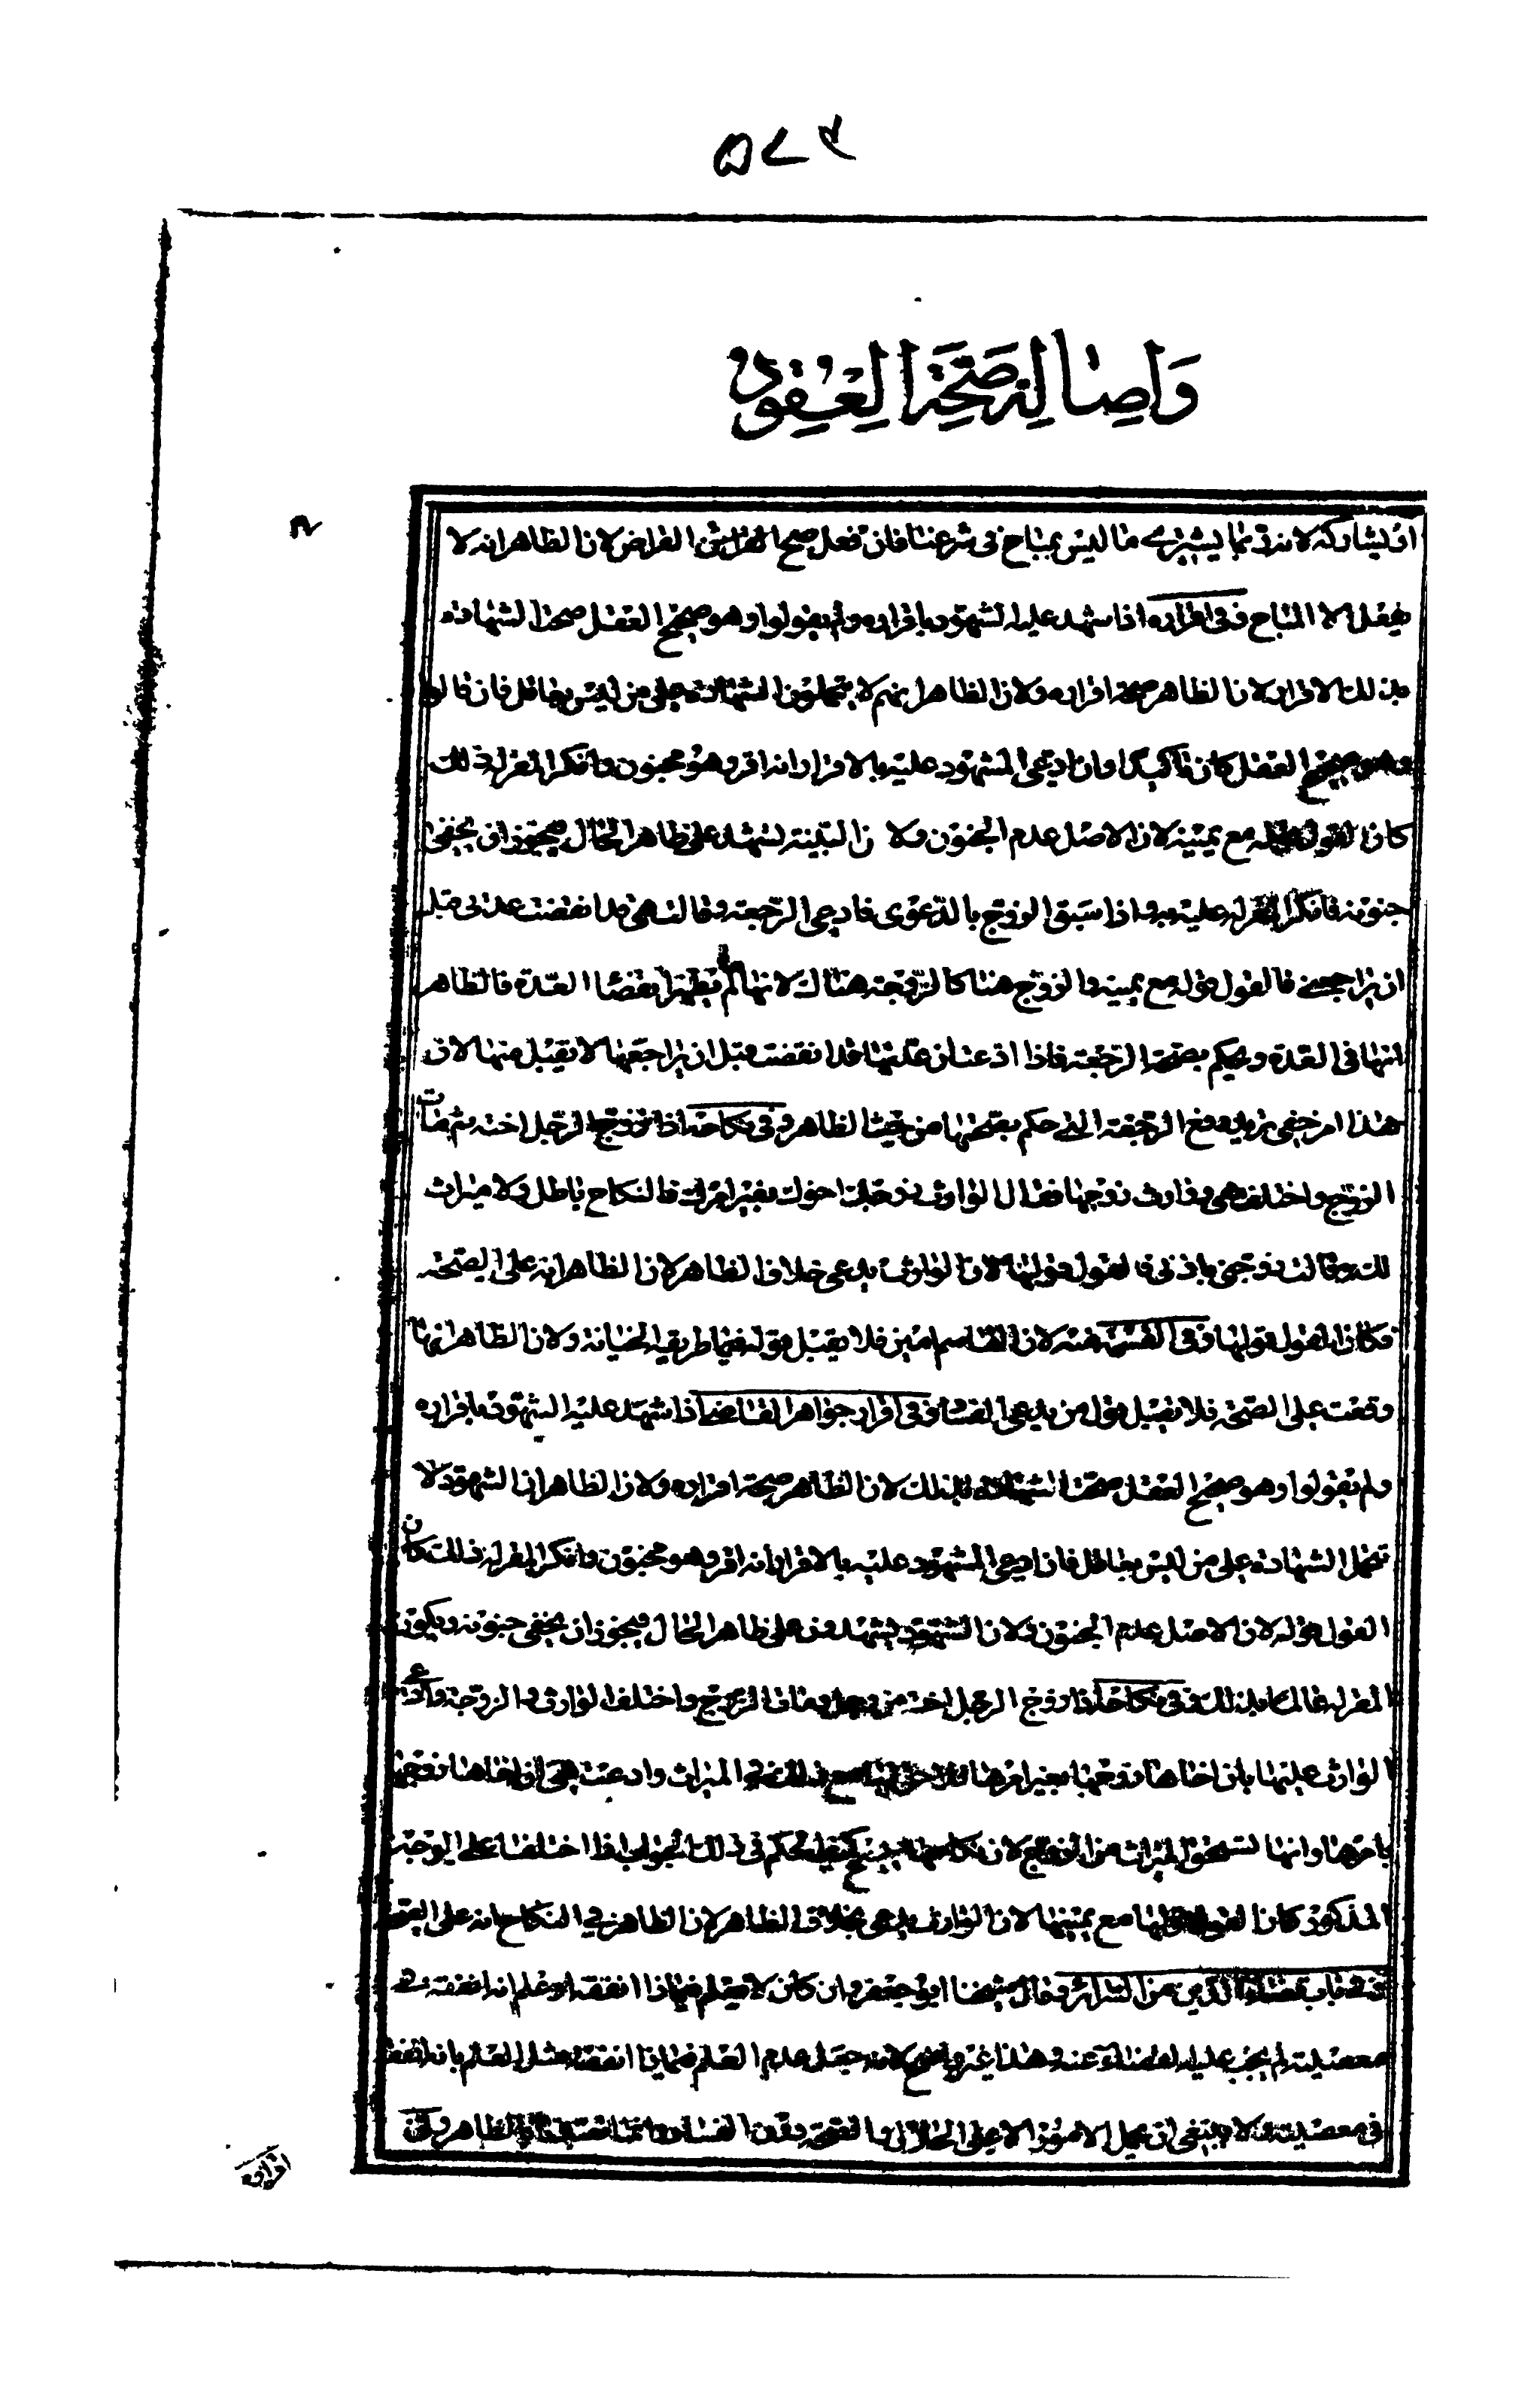 واصالة صحة العقود
ان يشاركه لانه ربما يشتري ما ليس بمباح في شرعنا فان فعل صح القراض لان الظاهر انه لا
يفعل الا المباح وفي اقراره اذا شهد عليه الشهود باقراره ولم يقولوا وهو صحيح العقل صحت الشهادة
بذلك الاقرار لان الظاهر صحة اقراره ولان الظاهر انهم لا يتحملون الشهادة على من ليس بعاقل فان قالوا
وهو صحيح العقل كان تاكيدا وان ادعى المشهود عليه بالاقرار انه اقر وهو مجنون وانكر المقر له ذلك
كان القول قوله مع يمينه لان الاصل عدم الجنون ولان البينة تشهد على ظاهر الحال فيجوز ان يخفى
جنونه فانكر المقر له عليه اذا سبق الزوج بالدعوى فادعى الرجعة وقالت هي قد انقضت عدتي قبل
ان يراجعني فالقول قوله مع يمينه والزوج هنا كالزوجة هناك لانها لم تظهر انقضاء العدة فالظاهر
انها في العدة ويحكم بصحة الرجعة فاذا ادعت ان عدتها قد انقضت قبل ان يراجعها لا يقبل منها لان
هذا امر خفي يريد رفع الرجعة التي حكم بصحتها من حيث الظاهر وفي نكاحه اذا تزوج الرجل اخته ثم مات
الزوج واختلف هي ووارث زوجها فقال الوارث زوجك اخوك بغير امرك فالنكاح باطل ولا ميراث
لك وقالت زوجني باذني فالقول قولها لان الوارث يدعي خلاف الظاهر لان الظاهر انه على الصحة
فكان القول قولها وفي القسمة منه لان القاسم امين فلا يقبل قوله فيما طريقه الخيانة ولان الظاهر انها
وقعت على الصحة فلا يقبل قول من يدعي الفساد وفي اقرار جواهر القاضي اذا شهد عليه الشهود باقراره
ولم يقولوا وهو صحيح العقل صحت الشهادة بذلك لان الظاهر صحة اقراره ولان الظاهر ان الشهود لا
تتحمل الشهادة على من ليس بعاقل فان ادعى المشهود عليه بالاقرار انه اقر وهو مجنون وانكر المقر له ذلك كان
القول قوله لان الاصل عدم الجنون ولان الشهود يشهدون على ظاهر الحال فيجوز ان يخفى جنونه ويكون
المقر له عالما بذلك وفي نكاحه اذا زوج الرجل اخته من رجل ومات الزوج واختلف الوارث والزوجة وادعى
الوارث عليها بان اخاها زوجها بغير امرها فلا حق لها مع ذلك في الميراث وادعت هي ان اخاها زوجها
بامرها وانها تستحق الميراث من الزوج لان نكاحها صحيح كيف الحكم في ذلك الجواب اذا اختلفا على الوجه
المذكور كان القول قولها مع يمينها لان الوارث يدعي خلاف الظاهر لان الظاهر في النكاح انه على الصحة
وفي باب قضاء الدين من السرائر وقال شيخنا ابو جعفر وان كان لا يعلم فيماذا انفقه او علم انه انفقه في
معصية لم يجب عليه القضاء عنه وهذا غير واضح لانه جعل عدم العلم فيماذا انفقه مثل العلم بانه انفقه
في معصية ولا ينبغي ان يحمل الامور الا على الحلال والصحة دون الفساد الظاهر وفي
اقراره